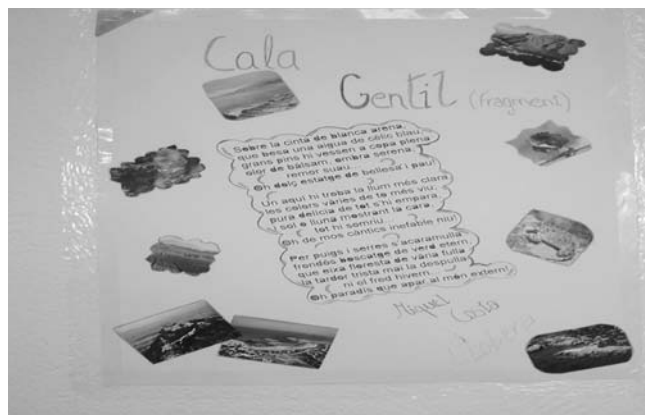 Cala
Gentil (fragment)
Sobre la cinta de blanca arena,
que besa una aigua de cèlic blau,
grans pins hi vessen a copa plena
olor de bàlsam, ombra serena,
remor suau...
Oh dolç estatge de bellesa i pau!
Un aquí hi troba la llum més clara
les colors vàries de to més viu;
pura delícia de tot s'hi empara,
y sol o lluna mostrant la cara,
tot hi somriu...
Oh de mos càntics inefable niu!
Per puigs i serres s'acaramulla
frondós boscatge de verd etern,
que eixa floresta de vària fulla
la tardor trista mai la despulla
ni el fred hivern...
Oh paradís que apar al món extern!
Miquel
Costa
i Llobera